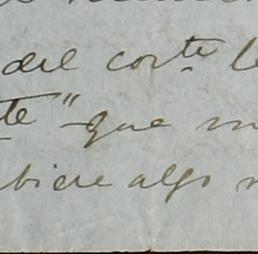 del corte
te" que
biere algo